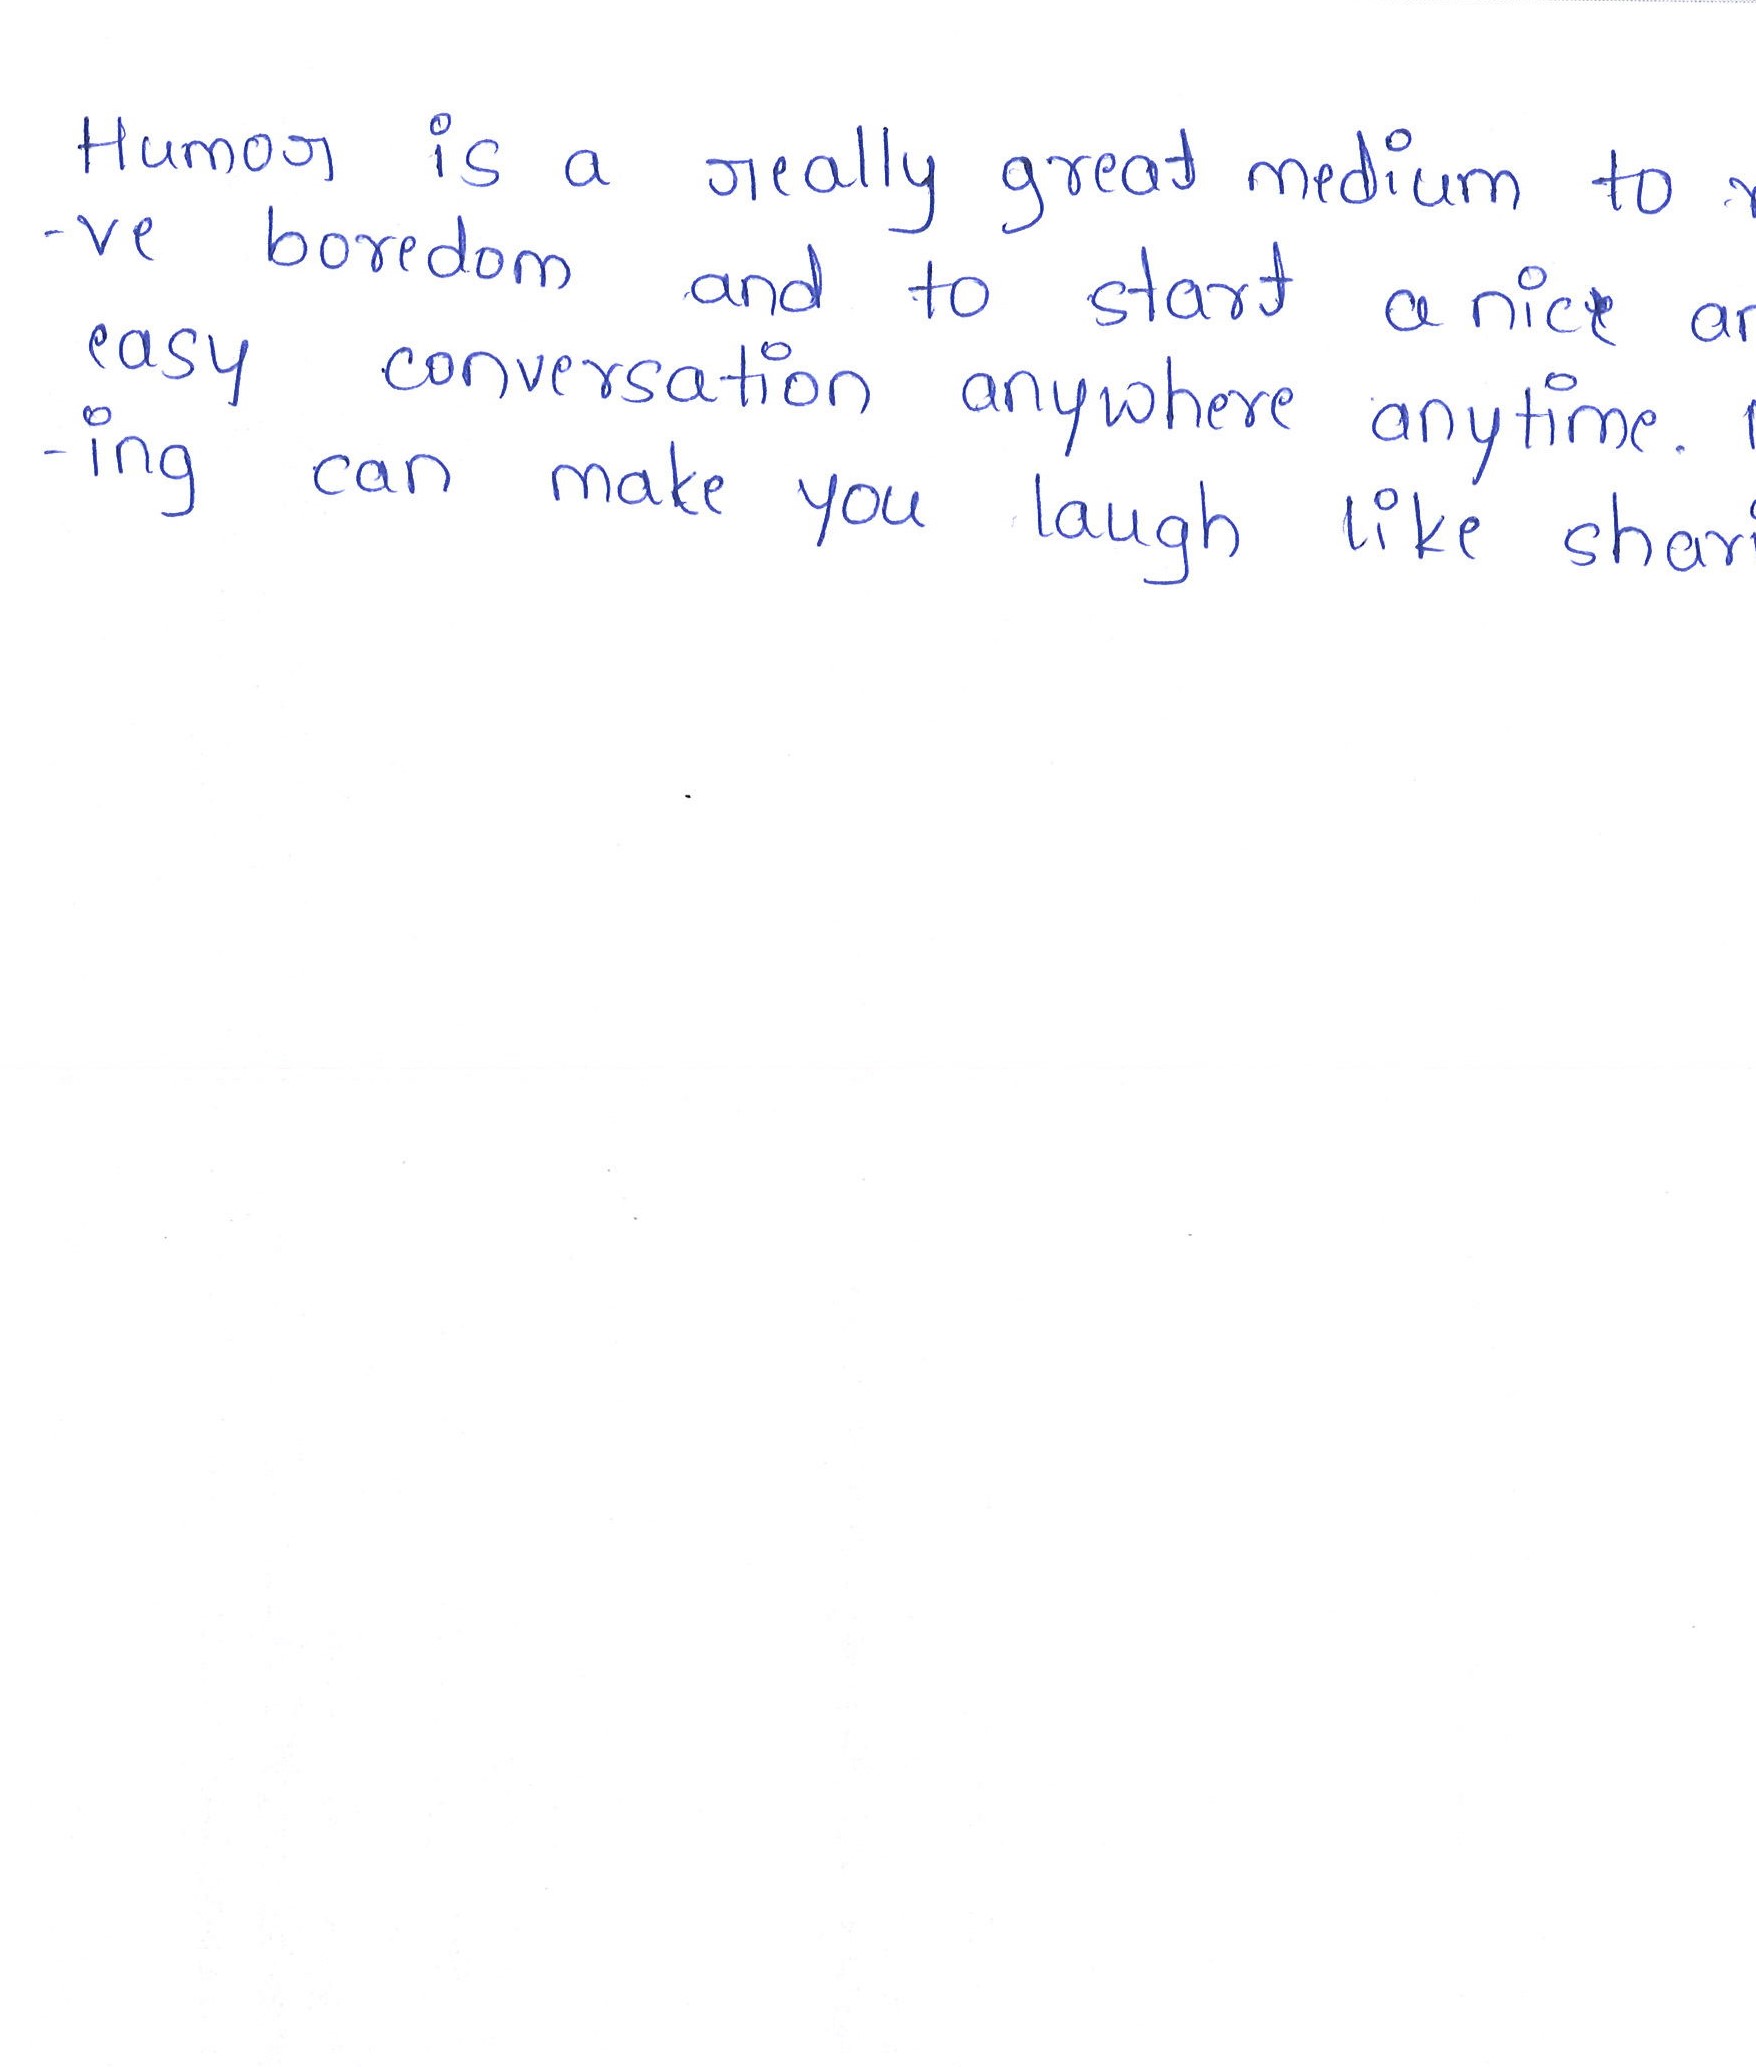 Humor is a really great medium to
-ve boredom and to start a nice
easy conversation anywhere anytime.
-ing can make you laugh like